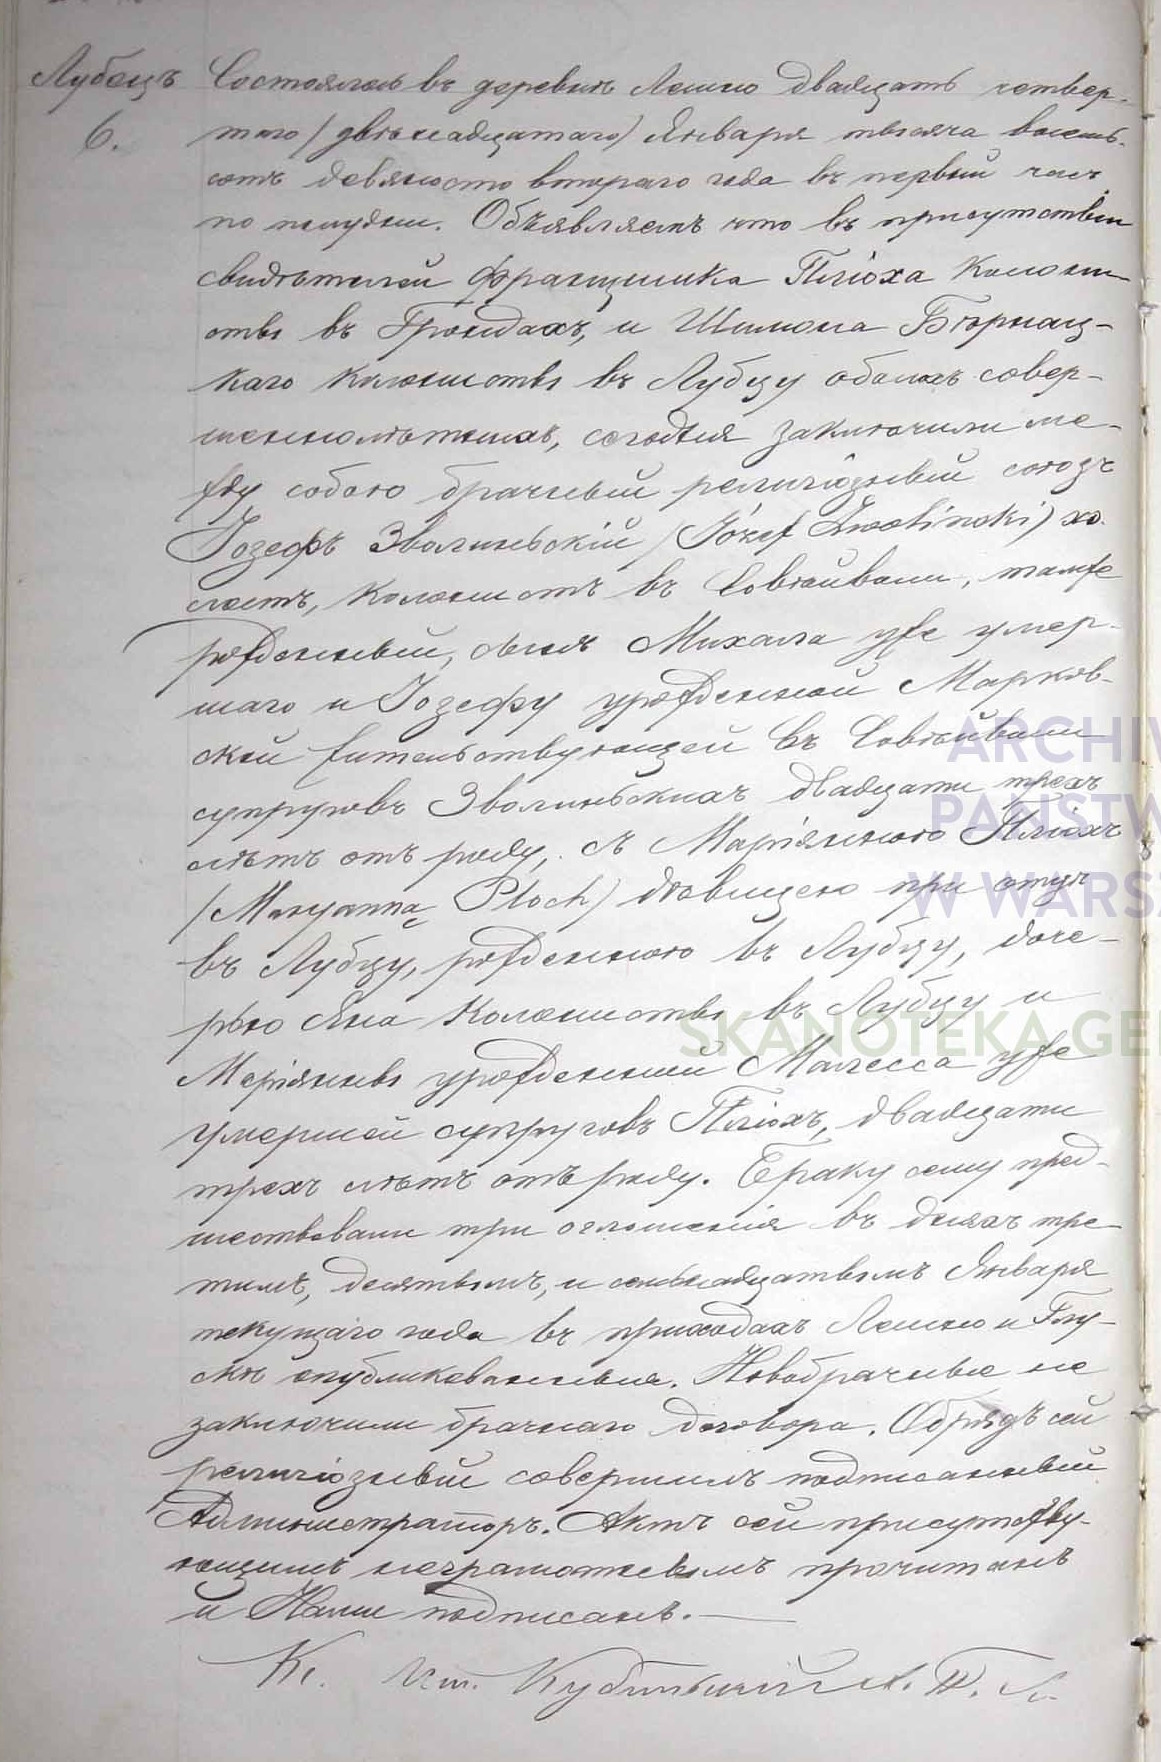 Лубецъ
6.
Состоялось въ деревнѣ Лешно двадцать четвер-
таго (двѣнадцатаго) Января тысяча восемь-
сотъ девяносто втораго года въ первый часъ
по полудни. Объявляемъ что въ присутствіи
свидѣтелей Францишка Плюха колони-
сты въ Грондахъ, и Шимона Бернац-
каго колонисты въ Лубцу обоихъ совер-
шеннолѣтнихъ, сегодня заключили ме-
жду собою брачный религіозный союзъ
Іозефъ Зволиньскій (Józef Zwoliński) хо-
лостъ, колонистъ въ тамже
рожденный, сынъ Михала уже умер-
шаго и Іозефу урожденной Марков-
ской жительствующей въ
супруговъ Зволиньскихъ двадцати трехъ
лѣтъ отъ роду, съ Маріянною Пліохъ
(Maryanna Płoch) дѣвицею при отцу
въ Лубцу, рожденною въ Лубцу, доче-
рью Яна колонисты въ Лубцу и
Маріянны урожденной Малесса уже
умершей супруговъ Пліохъ, двадцати
трехъ лѣтъ отъ роду. Браку сему пред-
шествовали три оглашенія въ дняхъ тре-
тимъ, десятымъ, и семьнадцатымъ Января
текущаго года въ приходахъ Лешно и
опубликованныя. Новобрачные не
заключили брачнаго договора. Обрядъ сей
религіозный совершилъ подписанный
Администраторъ. Актъ сей присутству-
ющимъ неграмотнымъ прочитанъ
и Нами подписанъ.
Кс.
ARCHIW
PAŃSTW
W WARSZ
SKANOTEKA GEN